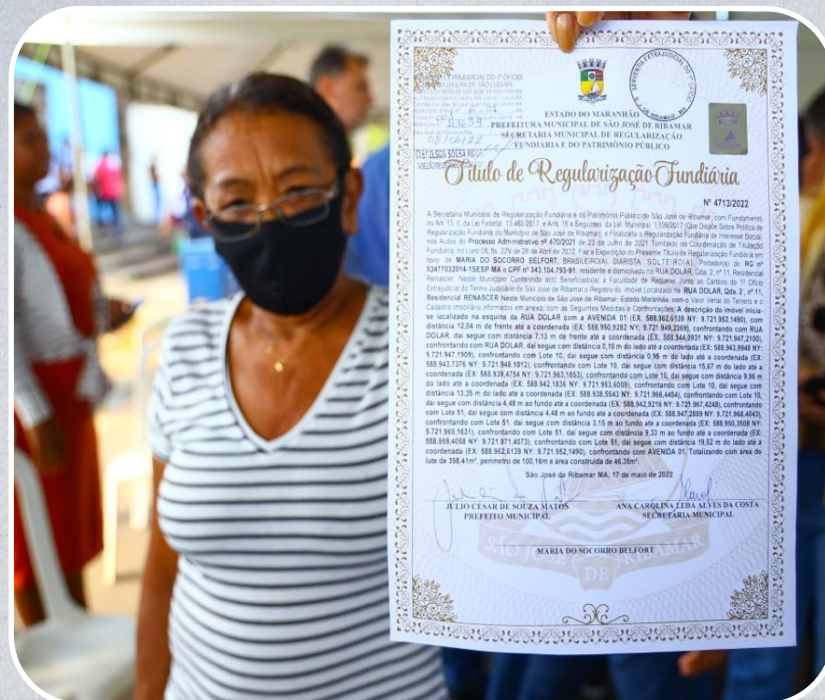 ESTADO DO MARANHÃO
PREFEITURA MUNICIPAL DE SÃO JOSÉ DE RIBAMAR
SECRETARIA MUNICIPAL DE REGULARIZAÇÃO
FUNDIÁRIA E DO PATRIMÔNIO PÚBLICO
Título de Regularização Fundiária
Nº 4713/2022
A Secretaria Municipal de Regularização Fundiária e do Patrimônio Público de São José de Ribamar, com Fundamento
no Art. 13, II, da Lei Federal 13.465/2017, e Arts. 16 e Seguintes, da Lei Municipal (Que Dispõe Sobre Política de
Regularização Fundiária do Município de São José de Ribamar), e Finalizada a Regularização Fundiária de Interesse Social,
nos Autos do Processo Administrativo nº 470/2021 de 23 de Julho de 2021, Tombado na Coordenação de Titulação
Fundiária, no Livro 06, fls. 22V de 26 de Abril de 2022, Faz a Expedição do Presente Título de Regularização Fundiária em
favor de MARIA DO SOCORRO BELFORT, BRASILEIRO(A), DIARISTA, SOLTEIRO(A), Portador(a) do RG nº
53477032014-1SESP-MA e CPF nº 343.104.793-91, residente e domiciliado na RUA DOLAR, Qda. 2, nº 11, Residencial
Renascer, Neste Município Conferindo a(o) Beneficiado(a) a Faculdade de Requerer Junto ao Cartório do 1º Ofício
Extrajudicial do Termo Judiciário de São José de Ribamar o Registro do Imóvel Localizado na RUA DOLAR, Qda. 2, nº 11,
Residencial RENASCER Neste Município de São José de Ribamar, Estado Maranhão, com o Valor Venal do Terreno e o
Cadastro Imobiliário informados em anexo, com as Seguintes Medidas e Confrontações: A descrição do imóvel inicia-
se localizado na esquina da RUA DOLAR com a AVENIDA 01 (EX: 588.962,6139 NY: 9.721.952,1490), com
distância 12,04 m de frente até a coordenada (EX: 588.950,9282 NY: 9.721.949,2369), confrontando com RUA
DOLAR, daí segue com distância 7,13 m de frente até a coordenada (EX: 588.944,0931 NY: 9.721.947,2100),
confrontando com RUA DOLAR, daí segue com distância 0,10 m do lado até a coordenada (EX: 588.943,9948 NY:
9.721.947,1909), confrontando com Lote 10, daí segue com distância 0,96 m do lado até a coordenada (EX:
588.943,7376 NY: 9.721.948,1012), confrontando com Lote 10, daí segue com distância 15,67 m do lado até a
coordenada (EX: 588.939,4754 NY: 9.721.963,1853), confrontando com Lote 10, daí segue com distância 9,96 m
do lado até a coordenada (EX: 588.942,1836 NY: 9.721.953,6009), confrontando com Lote 10, daí segue com
distância 13,35 m do lado até a coordenada (EX: 588.938,5543 NY: 9.721.966,4454), confrontando com Lote 10,
daí segue com distância 4,48 m ao fundo até a coordenada (EX: 588.942,9216 NY: 9.721.967,4248), confrontando
com Lote 51, daí segue com distância 4,48 m ao fundo até a coordenada (EX: 588.947,2889 NY: 9.721.968,4043),
confrontando com Lote 51, daí segue com distância 3,15 m ao fundo até a coordenada (EX: 588.950,3608 NY:
9.721.969,1631), confrontando com Lote 51, daí segue com distância 9,33 m ao fundo até a coordenada (EX:
588.959,4058 NY: 9.721.971,4073), confrontando com Lote 51, daí segue com distância 19,52 m do lado até a
coordenada (EX: 588.962,6139 NY: 9.721.952,1490), confrontando com AVENIDA 01, Totalizando com área do
lote de 398,41m², perímetro de 100,16m e área construída de 46,35m².
São José de Ribamar MA, 17 de maio de 2022
JULIO CESAR DE SOUZA MATOS
PREFEITO MUNICIPAL
ANA CAROLINA LEDA ALVES DA COSTA
SECRETÁRIA MUNICIPAL
MARIA DO SOCORRO BELFORT
SÃO JOSÉ DE RIBAMAR